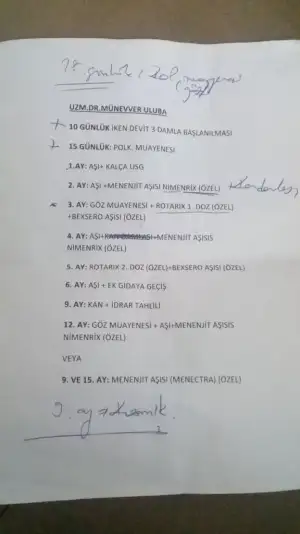 18 günlük
UZM.DR.MÜNEVVER ULUBA
10 GÜNLÜK İKEN DEVİT 3 DAMLA BAŞLANILMASI
15 GÜNLÜK: POLK. MUAYENESİ
1.AY: AŞI+ KALÇA USG
2. AY: AŞI +MENENJİT AŞISI NİMENRİX (ÖZEL)
3. AY: GÖZ MUAYENESİ + ROTARIX 1. DOZ (ÖZEL)
+BEXSERO AŞISI (ÖZEL)
4. AY: AŞI+ +MENENJİT AŞISIS
NİMENRİX (ÖZEL)
5. AY: ROTARIX 2. DOZ (ÖZEL)+BEXSERO AŞISI (ÖZEL)
6. AY: AŞI + EK GIDAYA GEÇİŞ
9. AY: KAN + İDRAR TAHLİLİ
12. AY: GÖZ MUAYENESİ + AŞI+MENENJİT AŞISIS
NİMENRİX (ÖZEL)
VEYA
9. VE 15. AY: MENENJİT AŞISI (MENECTRA) (ÖZEL)
9. ay